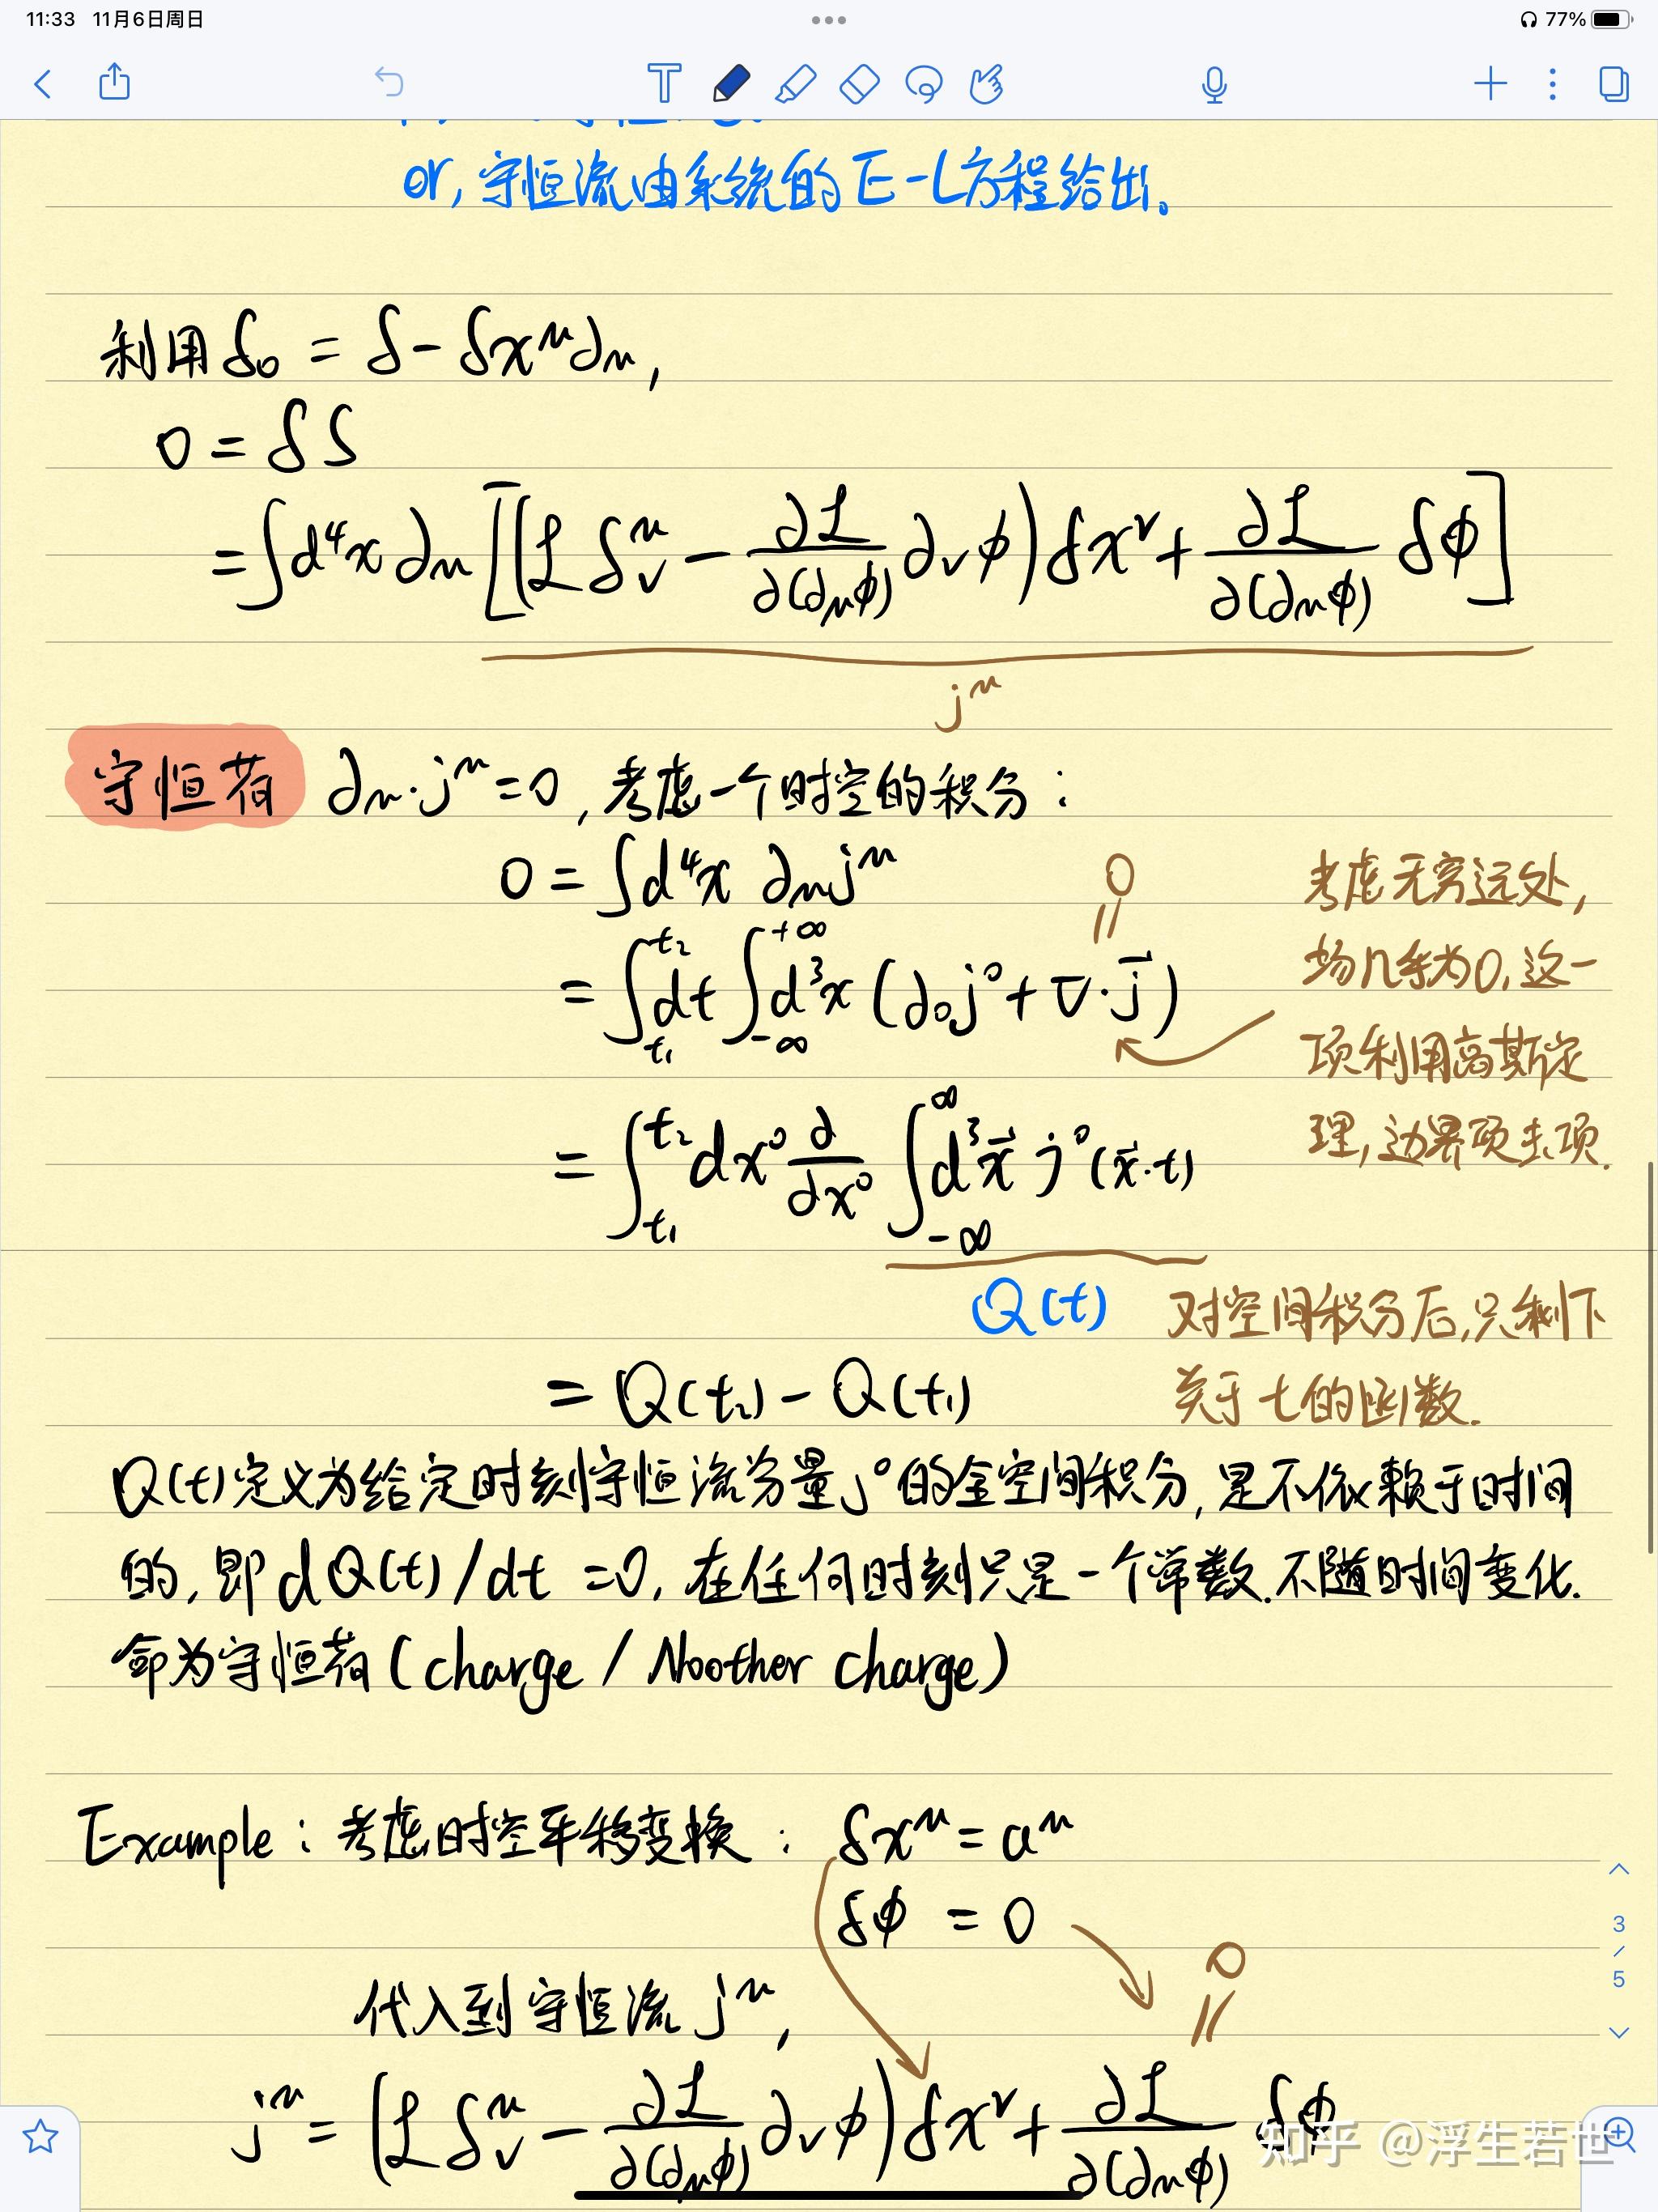 11:33 11月6日周日
77%
or, 守恒流由系统的E-L方程给出。
利用 δ₀ = δ - δx^μ∂_μ,
0 = δS
= ∫d⁴x ∂_μ [(ℒ δ^μ_ν - ∂ℒ/∂(∂_μϕ) ∂_νϕ) δx^ν + ∂ℒ/∂(∂_μϕ) δϕ]
j^μ
守恒荷 ∂_μ·j^μ = 0, 考虑一个时空的积分:
0 = ∫d⁴x ∂_μj^μ
= ∫_{t₁}^{t₂} dt ∫_{-∞}^{+∞} d³x (∂₀j⁰ + ∇·j⃗)
0
=
考虑无穷远处,
场几乎为0, 这一
项利用高斯定
理, 边界项去项.
= ∫_{t₁}^{t₂} dx⁰ ∂/∂x⁰ ∫_{-∞}^{∞} d³x⃗ j⁰(x⃗·t)
Q(t) 对空间积分后, 只剩下
关于t的函数.
= Q(t₂) - Q(t₁)
Q(t)定义为给定时刻守恒流分量j⁰的全空间积分, 是不依赖于时间
的, 即 dQ(t)/dt =0, 在任何时刻只是一个常数. 不随时间变化.
命为守恒荷 (charge / Noother charge)
Example: 考虑时空平移变换: δx^μ = a^μ
δϕ = 0
0
=
代入到守恒流 j^μ,
j^μ = (ℒ δ^μ_ν - ∂ℒ/∂(∂_μϕ) ∂_νϕ) δx^ν + ∂ℒ/∂(∂_μϕ) δϕ
3
/
5
知乎 @浮生若世